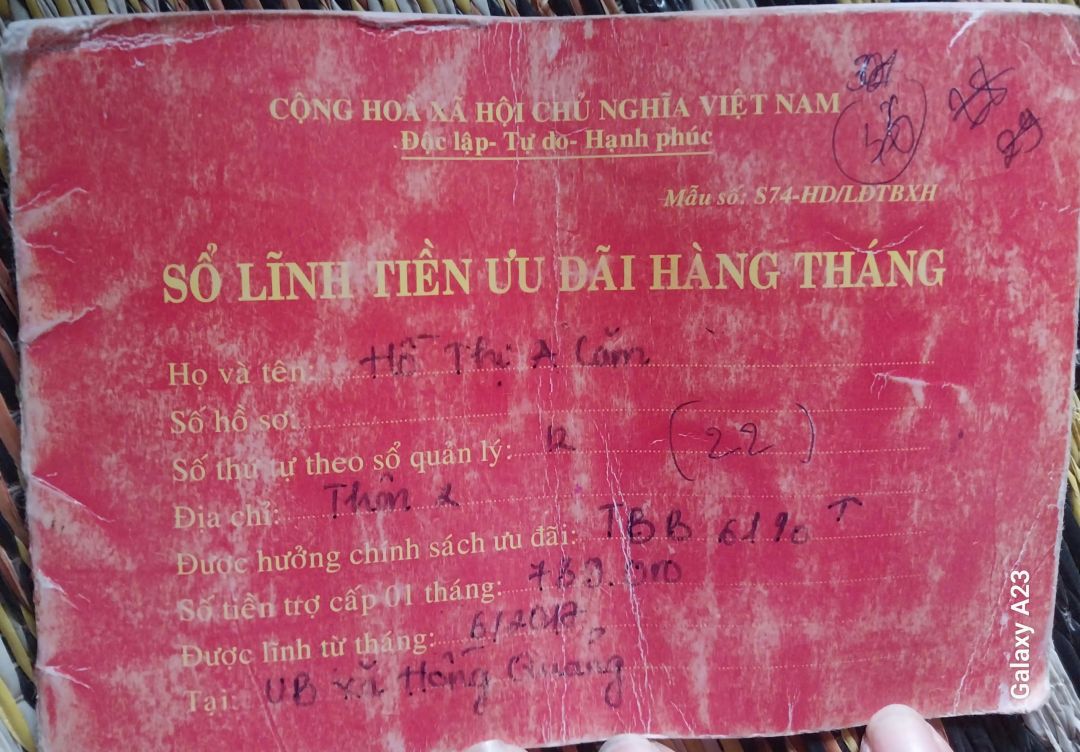 CỘNG HOÀ XÃ HỘI CHỦ NGHĨA VIỆT NAM
Độc lập- Tự do- Hạnh phúc
Mẫu số: S74-HD/LĐTBXH
SỔ LĨNH TIỀN ƯU ĐÃI HÀNG THÁNG
Họ và tên: Hồ Thị A Căm
Số hồ sơ:
Số thứ tự theo sổ quản lý: 12 (22)
Địa chỉ: Thôn 2
Được hưởng chính sách ưu đãi: TBB 61%
Số tiền trợ cấp 01 tháng:
Được lĩnh từ tháng: 6/2017
Tại: UB xã Hồng Quang
Galaxy A23